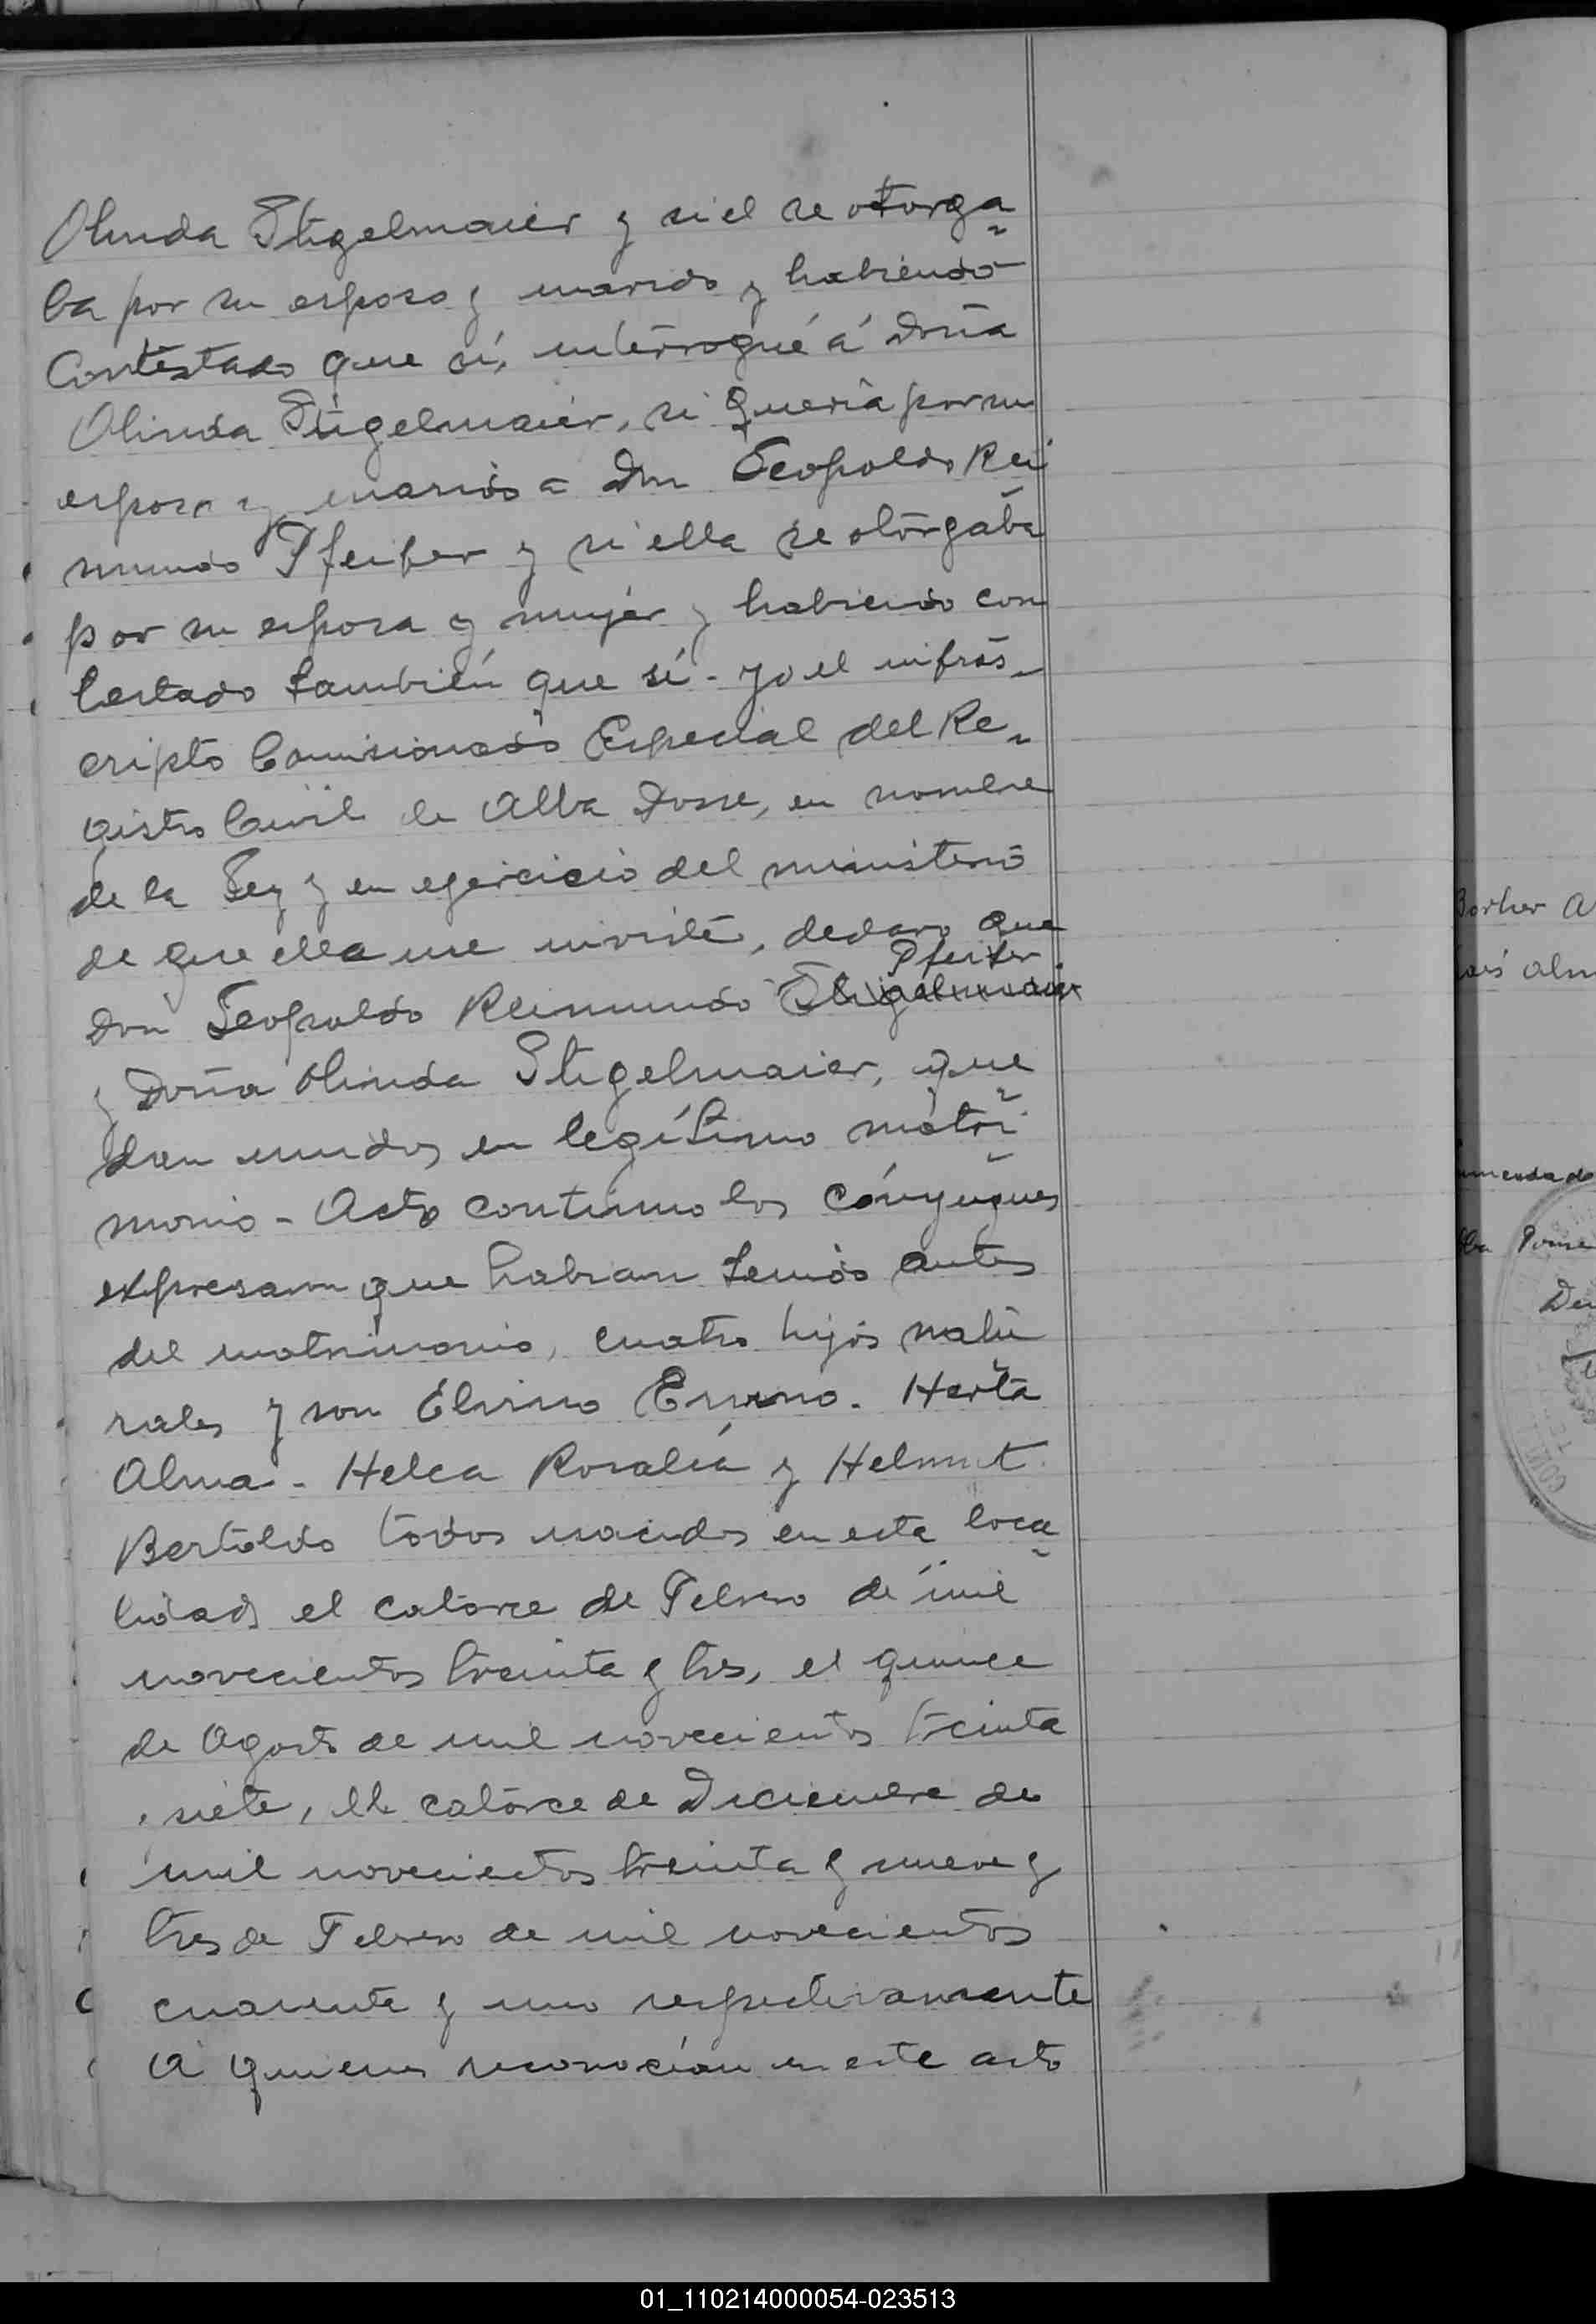 Olinda Stigelmaier y si el se otorga-
ba por su esposo y marido y habiendo
Contestado que sí, interrogué á Doña
Olinda Stigelmaier, si quería por su
esposo y marido a Don Leopoldo Rei
mundo Pfeifer y si ella se otorgaba
por su esposa y mujer y habiendo con
testado también que sí - yo el infras-
cripto Comisionado Especial del Re-
gistro Civil de Alba Posse, en nombre
de la Ley y en ejercicio del ministerio
de que ella me inviste, declaro que
Pfeifer
Don Leopoldo Reimundo Stigelmaier
y Doña Olinda Stigelmaier, que
dan unidos en legítimo matri-
monio - Acto continuo los cónyugues
expresaron que habian tenido antes
del matrimonio, cuatro hijos natu
rales y son Elvino Erno. Herta
Alma - Helca Rosalía y Helmut
Bertoldo todos nacidos en esta loca-
lidad, el catorce de Febrero de mil
novecientos treinta y tres, el quince
de Agosto de mil novecientos treinta
y siete, el catorce de Diciembre de
mil novecientos treinta y nueve y
tres de Febrero de mil novecientos
cuarenta y uno respectivamente
a quienes reconocían en este acto
Alba Posse
01_110214000054-023513